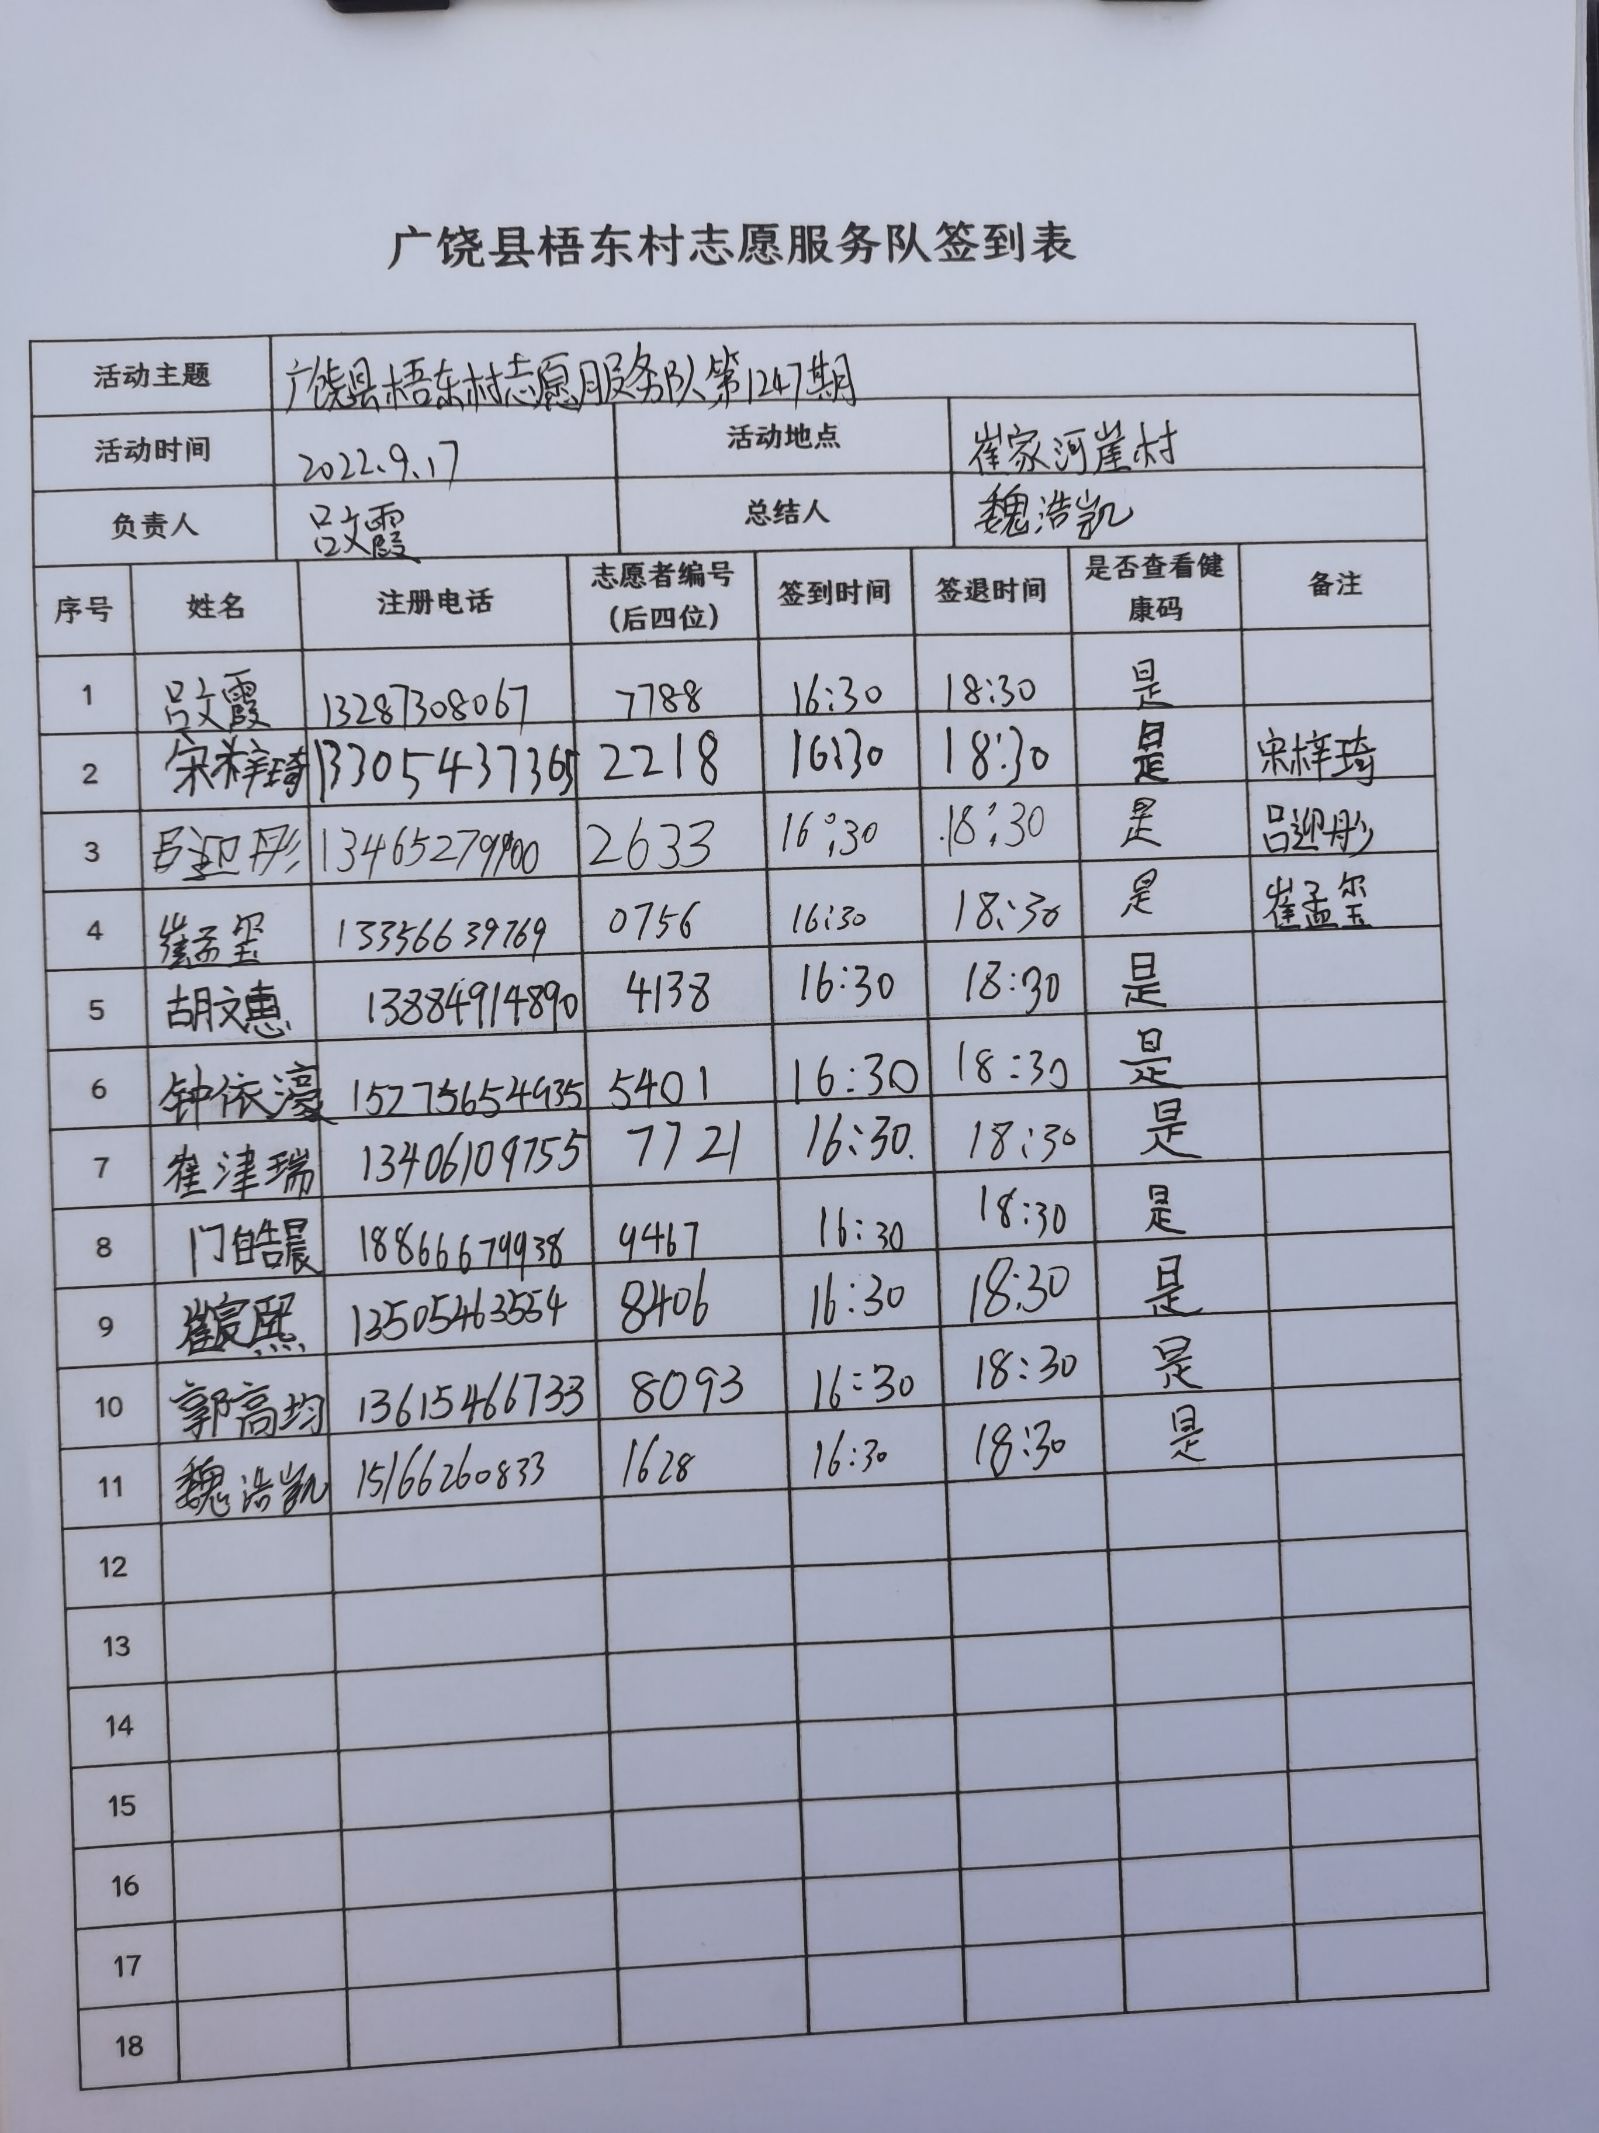 广饶县梧东村志愿服务队签到表
活动主题 广饶县梧东村志愿服务队第1247期
活动时间 2022.9.17 活动地点 崔家河崖村
负责人 吕文霞 总结人 魏浩凯
序号 姓名 注册电话 志愿者编号（后四位） 签到时间 签退时间 是否查看健康码 备注
1 吕文霞 13287308067 7788 16:30 18:30 是
2 宋梓琦 13305437365 2218 16:30 18:30 是 宋梓琦
3 吕迎彤 2633 16:30 18:30 是 吕迎彤
4 崔孟玺 13356639769 0756 16:30 18:30 是 崔孟玺
5 胡文惠 13884914890 4138 16:30 18:30 是
6 钟依濠 15275654935 5401 16:30 18:30 是
7 崔津瑞 13406109755 7721 16:30 18:30 是
8 门皓晨 18866679938 9467 16:30 18:30 是
9 崔宸熙 13505463554 8406 16:30 18:30 是
10 郭高均 13615466733 8093 16:30 18:30 是
11 魏浩凯 15166260833 1628 16:30 18:30 是
12
13
14
15
16
17
18